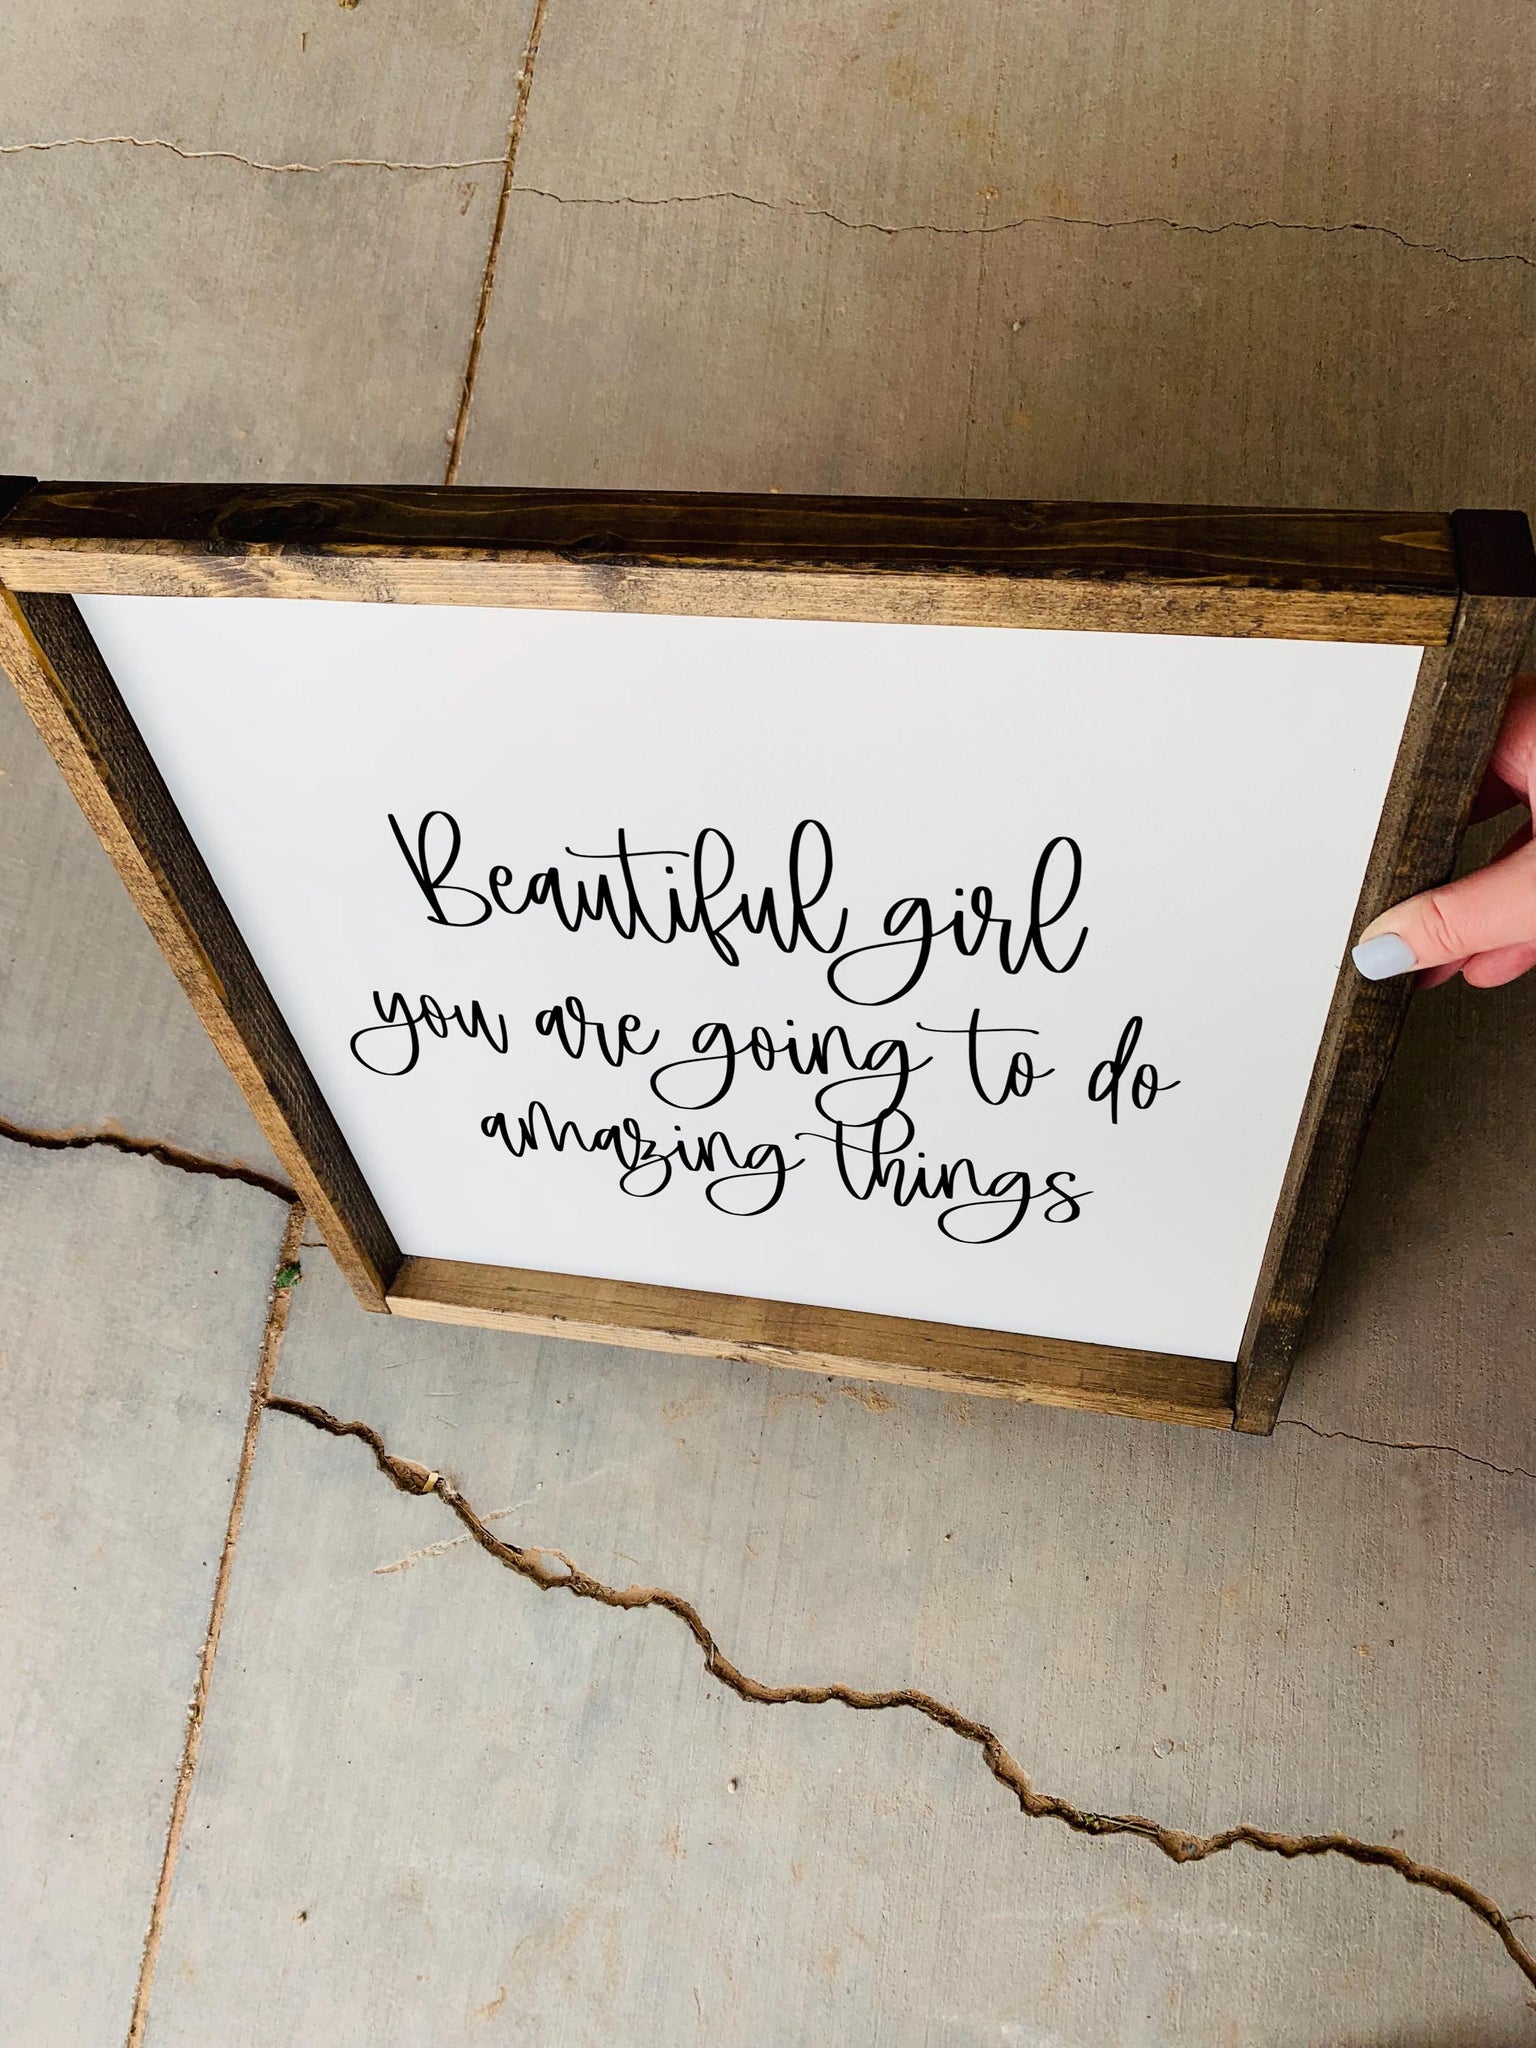 Beautiful girl
you are going to do
amazing things